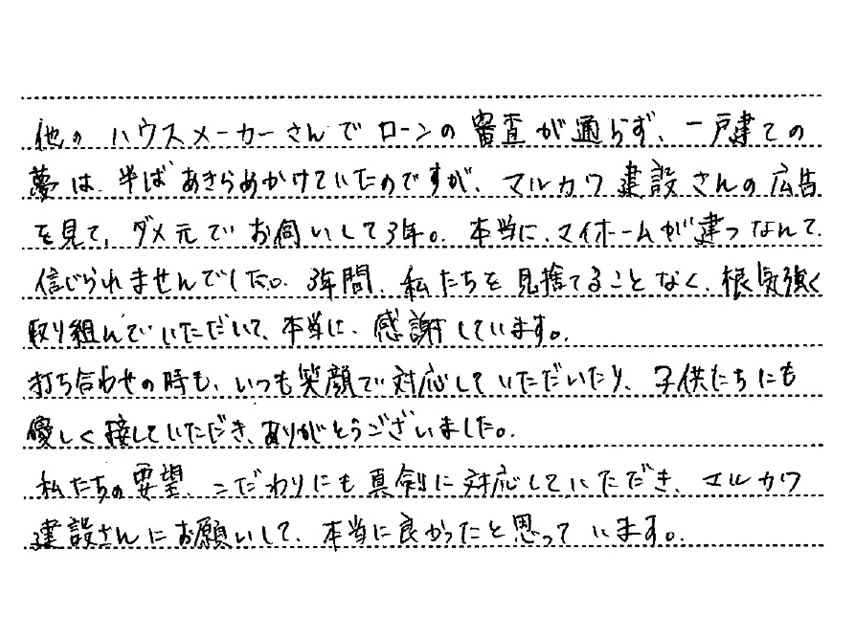 他のハウスメーカーさんでローンの審査が通らず、一戸建ての
夢は、半ばあきらめかけていたのですが、マルカワ建設さんの広告
を見て、ダメ元でお伺いして3年。本当に、マイホームが建つなんて
信じられませんでした。3年間、私たちを見捨てることなく、根気強く
取り組んでいただいて、本当に、感謝しています。
打ち合わせの時も、いつも笑顔で対応していただいたり、子供たちにも
優しく接していただき、ありがとうございました。
私たちの要望、こだわりにも真剣に対応していただき、マルカワ
建設さんにお願いして、本当に良かったと思っています。